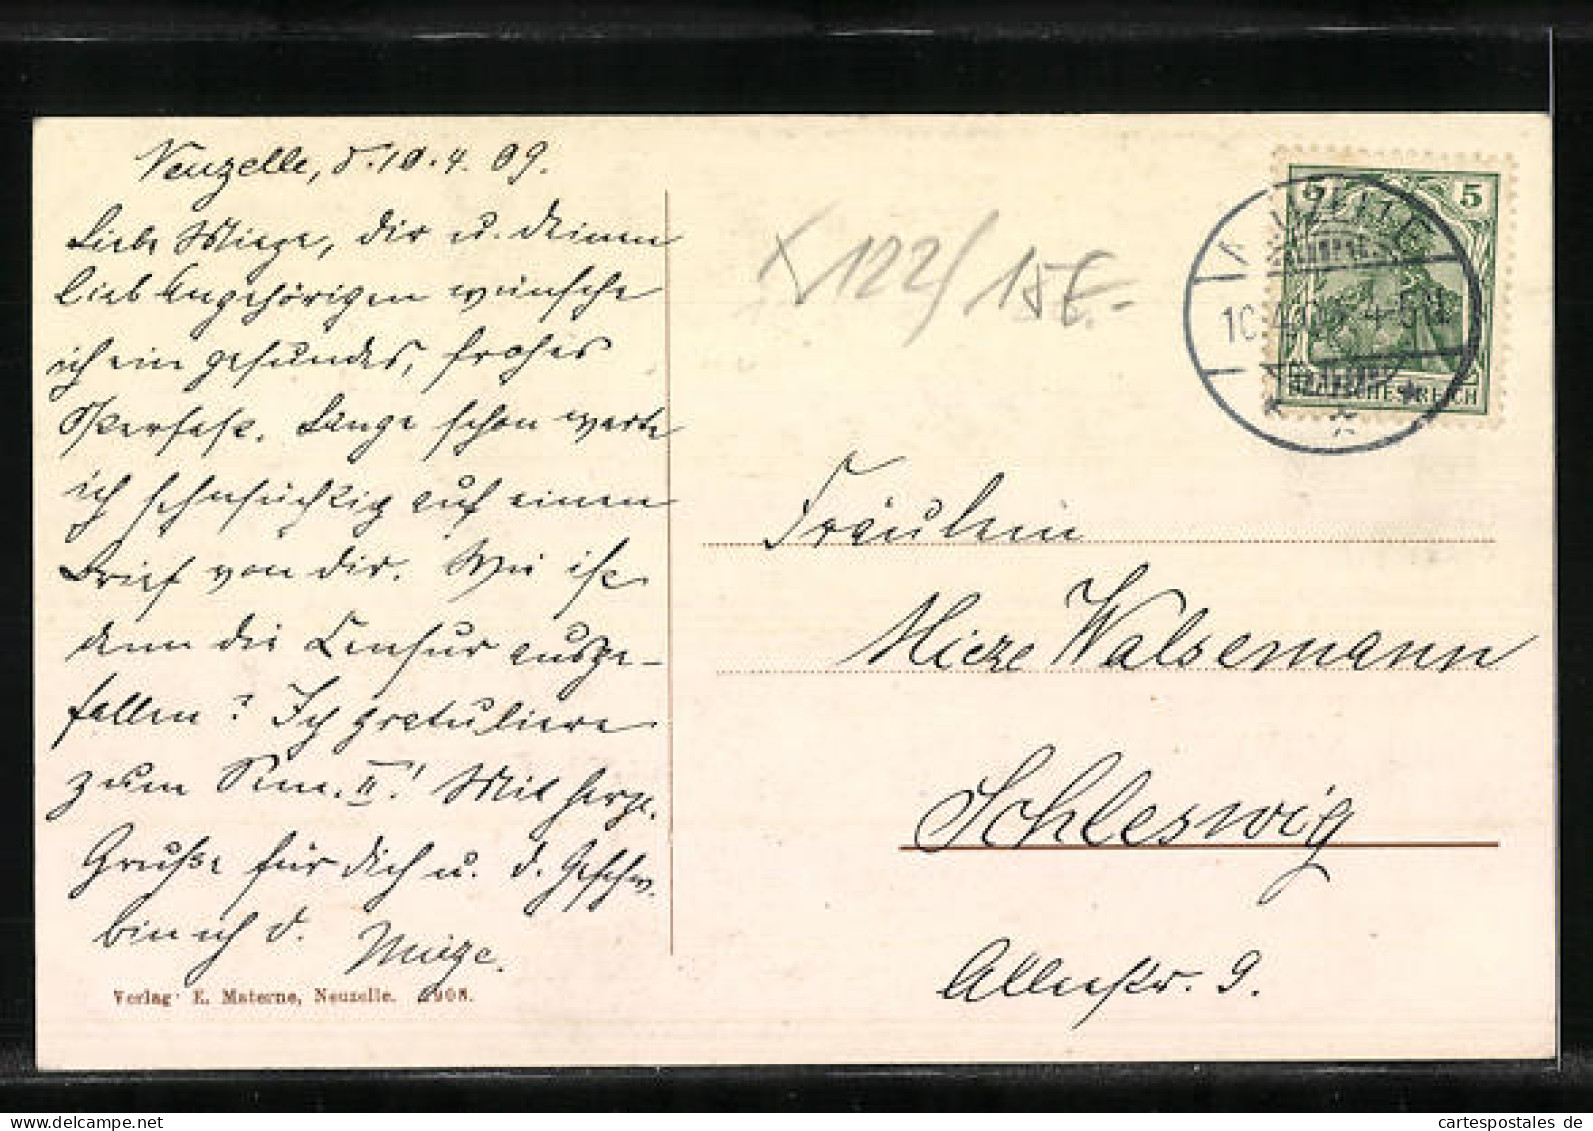 Neuzelle, d. 10.4.09.
Liebe Mieze, dir u. deinen
lieb Angehörigen wünsche
ich ein gesundes, frohes
Osterfest. Lange schon warte
ich sehnsüchtig auf einen
Brief von dir. Wie ist
denn die Censur ausge-
fallen? Ich gratuliere
zum Sem. II! Mit herzl.
Gruße für dich u. d. Geschw.
bin ich d. Mieze.
Verlag E. Materne, Neuzelle. 1908.
X122/15E.-
5 5
NEUZELLE
10.4.09. 4-5N
DEUTSCHES REICH
Fräulein
Mieze Walsemann
Schleswig
Alleestr. 9.
cartespostales de